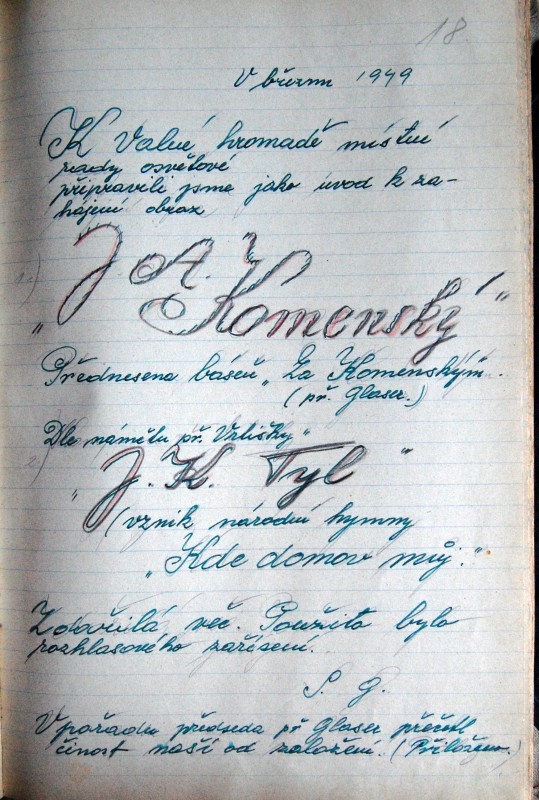 18.
V březnu 1949
K Valné hromadě místní
rady osvětové
připravili jsme jako úvod k za-
hájení obraz
1.)
„J. A.
Komenský"
Přednesena báseň „Za Komenským".
(př. Glaser.)
Dle námětu př. Vrličky
2.)
„J. K. Tyl"
(vznik národní hymny
„Kde domov můj."
Zdařilá věc. Použito bylo
rozhlasového zařízení.
S. G.
V pořadu předseda př Glaser přečetl
činost naší od založení. (Přiloženo.)